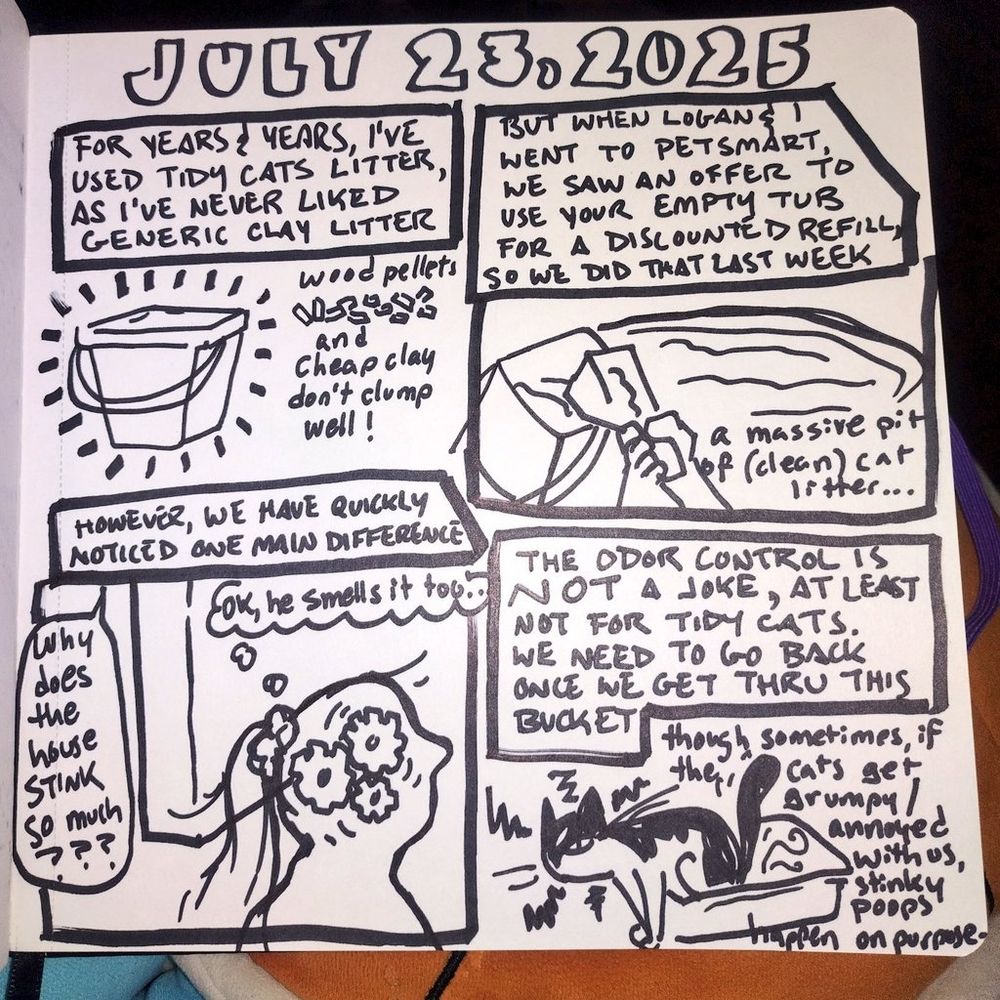 JULY 23, 2025
FOR YEARS & YEARS, I'VE
USED TIDY CATS LITTER,
AS I'VE NEVER LIKED
GENERIC CLAY LITTER
wood pellets
and
Cheap clay
don't clump
well!
BUT WHEN LOGAN & I
WENT TO PETSMART,
WE SAW AN OFFER TO
USE YOUR EMPTY TUB
FOR A DISCOUNTED REFILL,
SO WE DID THAT LAST WEEK
a massive pit
of (clean) cat
litter...
HOWEVER, WE HAVE QUICKLY
NOTICED ONE MAIN DIFFERENCE
OK, he smells it too...
Why
does
the
house
STINK
so much
???
THE ODOR CONTROL IS
NOT A JOKE, AT LEAST
NOT FOR TIDY CATS.
WE NEED TO GO BACK
ONCE WE GET THRU THIS
BUCKET
though sometimes, if
the cats get
grumpy/
annoyed
with us,
stinky
poops
happen on purpose.